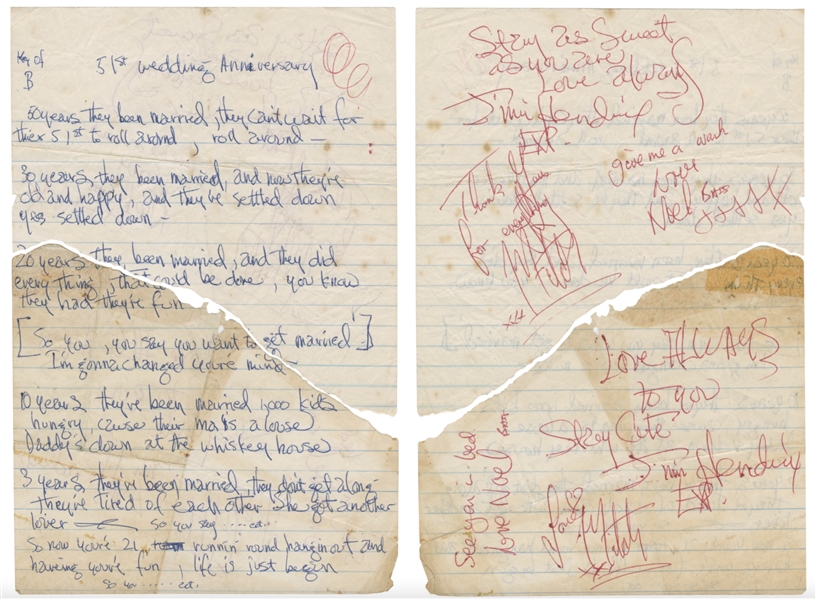 Key of
B
51st wedding Anniversary
50 years they been married, they can't wait for
their 51st to roll around, roll around —
30 years, they been married, and now they're
old and happy, and they've settled down
yes settled down —
20 years they been married, and they did
every thing, that could be done, you know
they had they're fun
[So you, you say you want to get married]
I'm gonna changed you're mind —
10 years they've been married 1,000 kids
hungry, cause their ma's a louse
Daddy's down at the whiskey house
3 years, they've been married, they don't get along
they're tired of each other she got another
lover — So you say ..... ect.
So now you're 21, runnin' round hangin out and
haveing you're fun, life is just begin
so you ..... ect.
Stay as Sweet
as you are
Love always
Jimi Hendrix
EXP.
Thank you
for everything
Mitch
xx
give me a
love
Noel Bass
XXXXX
Love ALWAYS
to you
Stay Cute
Jimi Hendrix
EXP.
See you in bed
love Noel
Bass
Love
Mitch
xxx